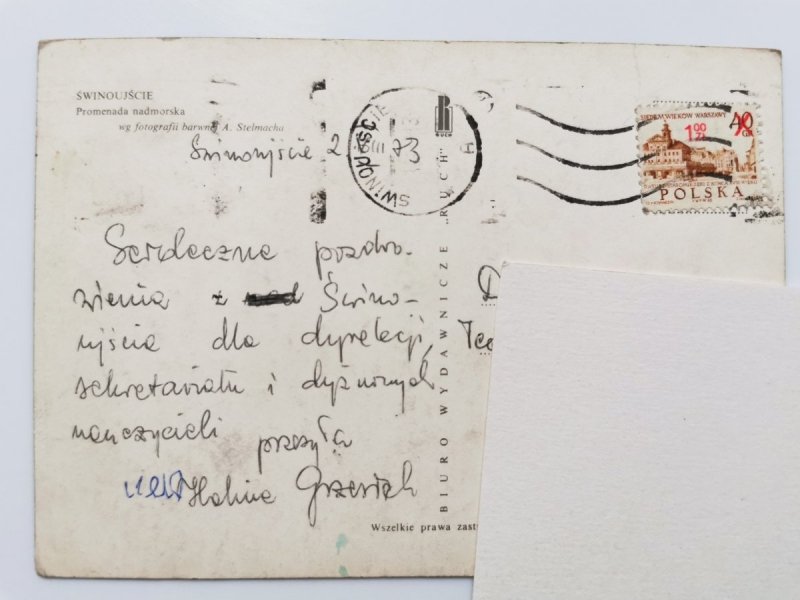 ŚWINOUJŚCIE
Promenada nadmorska
wg fotografii barwnej A. Stelmacha
Świnoujście 2
ŚWINOUJŚCIE
73
RUCH
SIEDEM WIEKÓW WARSZAWY
1 00 ZŁ
40
POLSKA
Serdeczne pozdro-
wienia z Świno-
ujścia dla dyrekcji,
sekretariatu i dyżurnych
nauczycieli przesyła
Halina Grzesiak
BIURO WYDAWNICZE „RUCH"
Wszelkie prawa zast